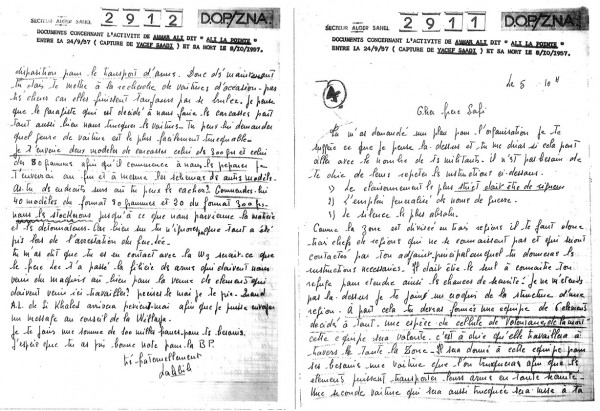 SECTEUR ALGER SAHEL
2912
DOP/ZNA.
DOCUMENTS CONCERNANT L'ACTIVITE DE AMMAR ALI DIT " ALI LA POINTE "
ENTRE LA 24/9/57 ( CAPTURE DE YACEF SAADI ) ET SA MORT LE 8/10/1957.
disposition pour le transport d'armes. Donc dès maintenant
tu dois te mettre à la recherche de voitures d'occasion - pas
très chères car elles finissent toujours par se brûler. Je pense
que le garagiste qui est décidé à nous faire les carcasses peut
tout aussi bien nous truquer les voitures. Tu peux lui demander
quel genre de voiture est le plus facilement truquable.
Je t'envoie deux modèles de carcasses celui des 300 grs et celui
des 80 grammes afin qu'il commence à nous les préparer. Je
t'enverrai au fur et à mesure les schémas de autres modèles.
As-tu de endroits sûrs où tu peux les cacher? Commandes-lui
40 modèles du format 80 grammes et 20 du format 300 grs.
nous les stockerons jusqu'à ce que nous parvienne la matière
et les détonateurs. Ou bien
pris lors de l'arrestation du frère
tu m'as dit que tu es en contact avec la W3 serait-ce que
le frère t'a passé la filière de armes qui doivent nous
venir du maquis ou bien pour la venue de éléments qui
doivent venir ici travailler? précises le moi je te prie. Quand
AS. de Si Khaled arrivera préviens-moi afin que je puisse envoyer
un message au conseil de la Willaya.
Je te joins une somme de cent milles francs pour les besoins.
J'espère que tu as pris bonne note pour la B.P.
très fraternellement
SECTEUR ALGER SAHEL
2911
DOP/ZNA.
DOCUMENTS CONCERNANT L'ACTIVITE DE AMMAR ALI DIT " ALI LA POINTE "
ENTRE LA 24/9/57 ( CAPTURE DE YACEF SAADI ) ET SA MORT LE 8/10/1957.
4
Le 5 10
Cher frère Safi
Tu m'as demandé un plan pour l'organisation je te
suffis ce que je pense là dessus et tu me diras si cela peut
aller avec le nombre de tes militants. Il n'est pas besoin de
te dire de leur répéter les instructions ci-dessous.
1) Le cloisonnement le plus strict doit être de rigueur
2) L'emploi généralisé de noms de guerre.
3) Le silence le plus absolu.
Comme la zone est divisée en trois régions il te faut donc
trois chefs de régions qui ne se connaissent pas et qui seront
contactés par ton adjoint principal auquel tu donneras les
instructions nécessaires. Il doit être le seul à connaître ton
refuge pour étendre ainsi les chances de sécurité. Je ne m'étends
pas là-dessus je te joins un croquis de la structure d'une
région. A part cela tu devras former une équipe de 6 éléments
décidés à tout. une espèce de cellule de volontaires de la mort
cette équipe sera volante. c'est à dire qu'elle travaillera à
travers toute la zone. Il sera donné à cette équipe pour
ses besoins une voiture que l'on truquera afin que les
éléments puissent transporter leurs armes en toute sécurité.
Une seconde voiture qui sera aussi truquée sera mise à ta